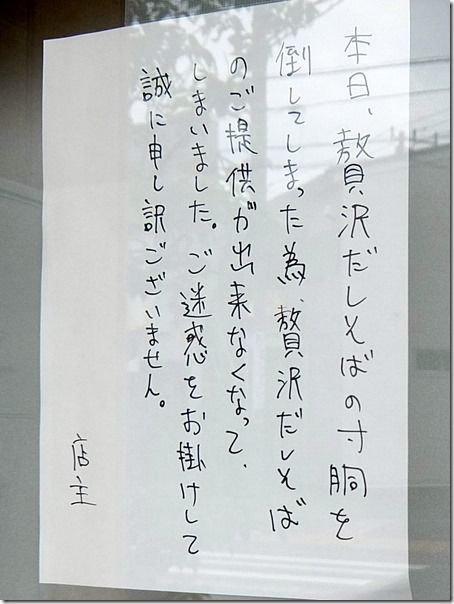 本日、贅沢だしそばの寸胴を
倒してしまった為、贅沢だしそば
のご提供が出来なくなって、
しまいました。ご迷惑をお掛けして
誠に申し訳ございません。
店主